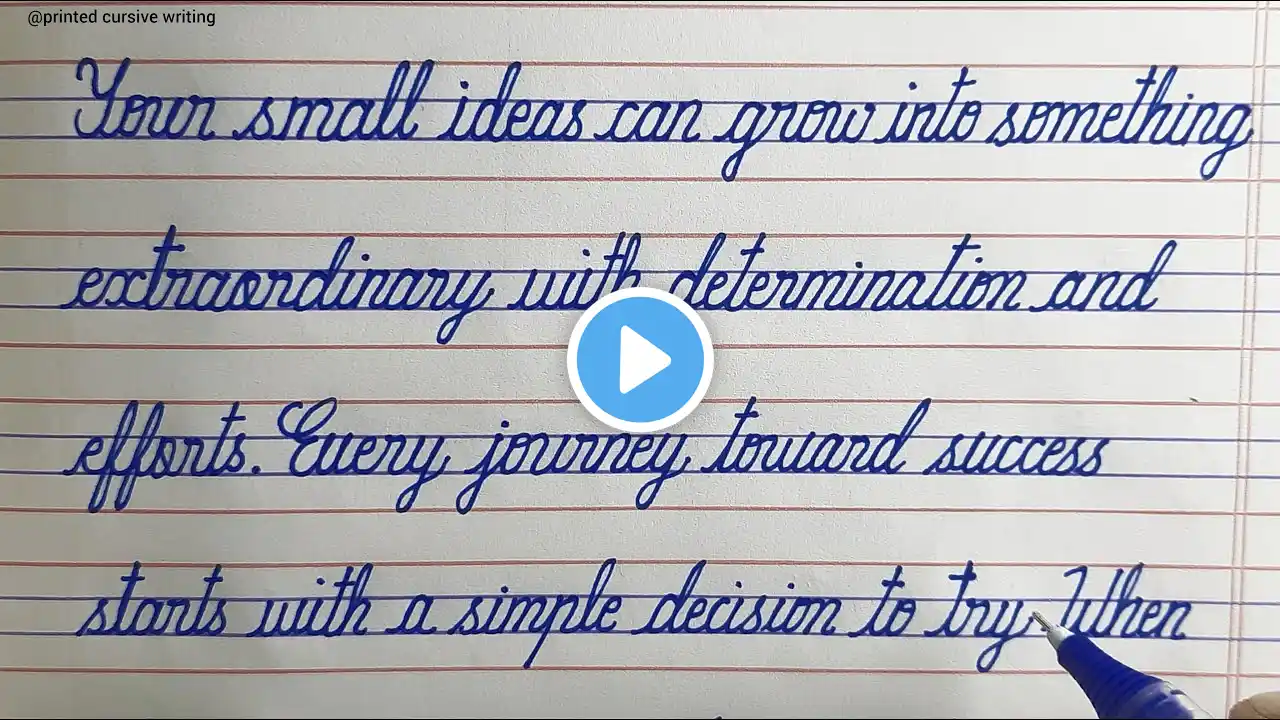 @printed cursive writing
Your small ideas can grow into something
extraordinary with determination and
efforts. Every journey toward success
starts with a simple decision to try. When